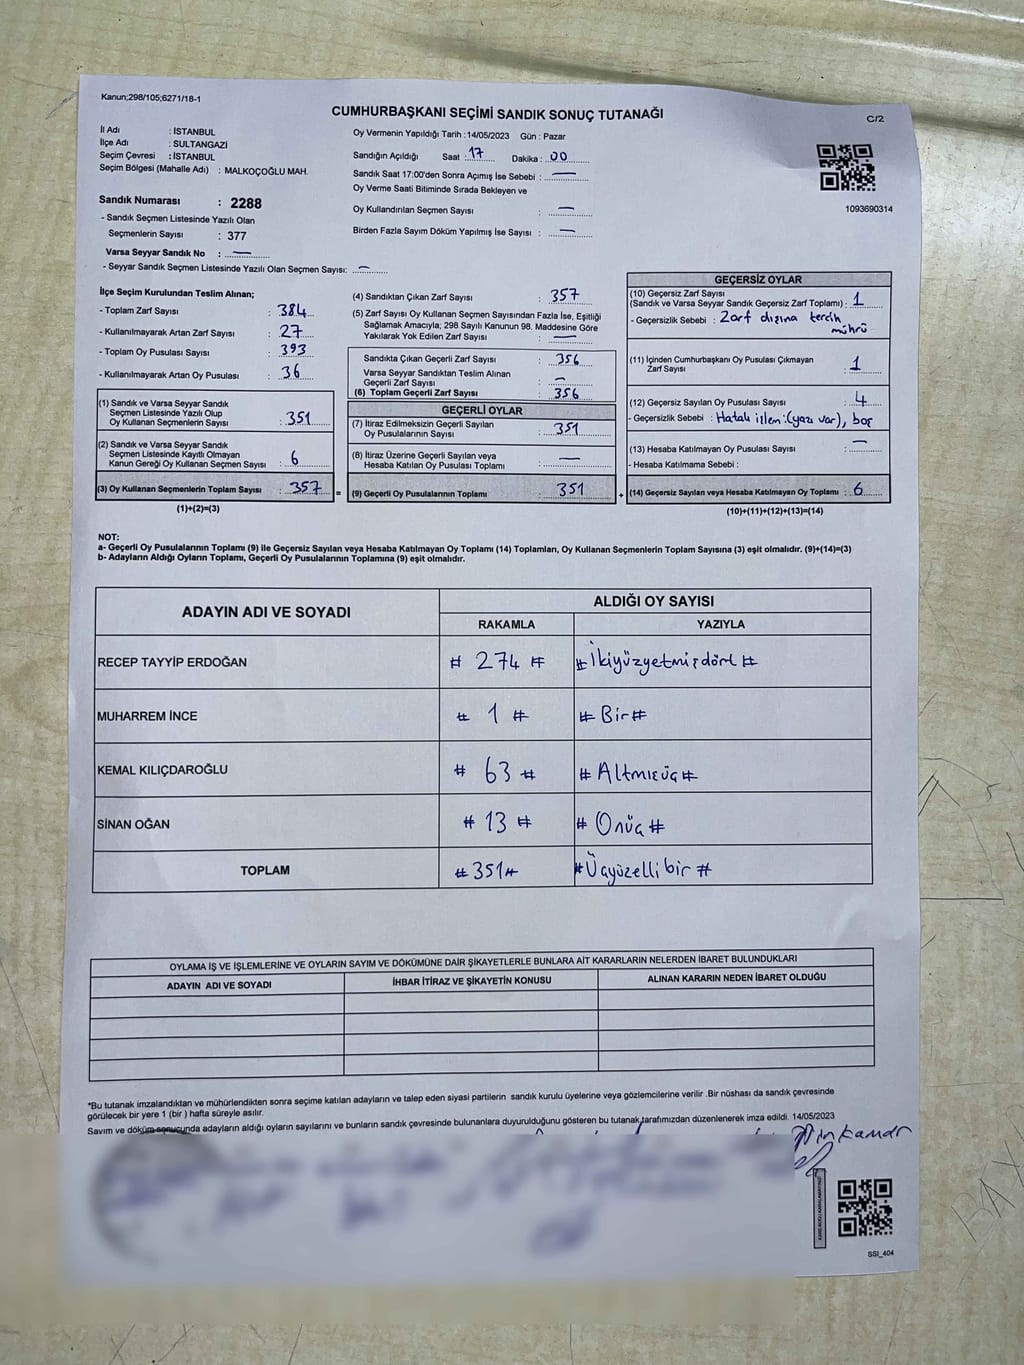 Kanun;298/105;6271/18-1
CUMHURBAŞKANI SEÇİMİ SANDIK SONUÇ TUTANAĞI
C/2
İl Adı : İSTANBUL
İlçe Adı : SULTANGAZİ
Seçim Çevresi : İSTANBUL
Seçim Bölgesi (Mahalle Adı) : MALKOÇOĞLU MAH.
Oy Vermenin Yapıldığı Tarih : 14/05/2023 Gün : Pazar
Sandığın Açıldığı Saat : 17 Dakika : 00
Sandık Saat 17:00'den Sonra Açımış İse Sebebi : —
Oy Verme Saati Bitiminde Sırada Bekleyen ve
Oy Kullandırılan Seçmen Sayısı : —
Birden Fazla Sayım Döküm Yapılmış İse Sayısı : —
1093690314
Sandık Numarası : 2288
- Sandık Seçmen Listesinde Yazılı Olan
Seçmenlerin Sayısı : 377
Varsa Seyyar Sandık No : —
- Seyyar Sandık Seçmen Listesinde Yazılı Olan Seçmen Sayısı: —
İlçe Seçim Kurulundan Teslim Alınan;
- Toplam Zarf Sayısı : 384
- Kullanılmayarak Artan Zarf Sayısı : 27
- Toplam Oy Pusulası Sayısı : 393
- Kullanılmayarak Artan Oy Pusulası : 36
(1) Sandık ve Varsa Seyyar Sandık
Seçmen Listesinde Yazılı Olup
Oy Kullanan Seçmenlerin Sayısı : 351
(2) Sandık ve Varsa Seyyar Sandık
Seçmen Listesinde Kayıtlı Olmayan
Kanun Gereği Oy Kullanan Seçmen Sayısı : 6
(3) Oy Kullanan Seçmenlerin Toplam Sayısı : 357 =
(1)+(2)=(3)
(4) Sandıktan Çıkan Zarf Sayısı : 357
(5) Zarf Sayısı Oy Kullanan Seçmen Sayısından Fazla İse, Eşitliği
Sağlamak Amacıyla; 298 Sayılı Kanunun 98. Maddesine Göre
Yakılarak Yok Edilen Zarf Sayısı : —
Sandıkta Çıkan Geçerli Zarf Sayısı : 356
Varsa Seyyar Sandıktan Teslim Alınan
Geçerli Zarf Sayısı : —
(6) Toplam Geçerli Zarf Sayısı : 356
GEÇERLİ OYLAR
(7) İtiraz Edilmeksizin Geçerli Sayılan
Oy Pusulalarının Sayısı : 351
(8) İtiraz Üzerine Geçerli Sayılan veya
Hesaba Katılan Oy Pusulası Toplamı : —
(9) Geçerli Oy Pusulalarının Toplamı : 351 +
GEÇERSİZ OYLAR
(10) Geçersiz Zarf Sayısı
(Sandık ve Varsa Seyyar Sandık Geçersiz Zarf Toplamı) : 1
- Geçersizlik Sebebi : Zarf dışına tercih
mührü
(11) İçinden Cumhurbaşkanı Oy Pusulası Çıkmayan
Zarf Sayısı : 1
(12) Geçersiz Sayılan Oy Pusulası Sayısı : 4
- Geçersizlik Sebebi : Hatalı işlem:(yazı var), boş
(13) Hesaba Katılmayan Oy Pusulası Sayısı : —
- Hesaba Katılmama Sebebi :
(14) Geçersiz Sayılan veya Hesaba Katılmayan Oy Toplamı : 6
(10)+(11)+(12)+(13)=(14)
NOT:
a- Geçerli Oy Pusulalarının Toplamı (9) ile Geçersiz Sayılan veya Hesaba Katılmayan Oy Toplamı (14) Toplamları, Oy Kullanan Seçmenlerin Toplam Sayısına (3) eşit olmalıdır. (9)+(14)=(3)
b- Adayların Aldığı Oyların Toplamı, Geçerli Oy Pusulalarının Toplamına (9) eşit olmalıdır.
ADAYIN ADI VE SOYADI
ALDIĞI OY SAYISI
RAKAMLA YAZIYLA
RECEP TAYYİP ERDOĞAN # 274 # # İkiyüzyetmişdört #
MUHARREM İNCE # 1 # # Bir #
KEMAL KILIÇDAROĞLU # 63 # # Altmışüç #
SİNAN OĞAN # 13 # # Onüç #
TOPLAM # 351 # # Üçyüzelli bir #
OYLAMA İŞ VE İŞLEMLERİNE VE OYLARIN SAYIM VE DÖKÜMÜNE DAİR ŞİKAYETLERLE BUNLARA AİT KARARLARIN NELERDEN İBARET BULUNDUKLARI
ADAYIN ADI VE SOYADI İHBAR İTİRAZ VE ŞİKAYETİN KONUSU ALINAN KARARIN NEDEN İBARET OLDUĞU
*Bu tutanak imzalandıktan ve mühürlendikten sonra seçime katılan adayların ve talep eden siyasi partilerin sandık kurulu üyelerine veya gözlemcilerine verilir .Bir nüshası da sandık çevresinde
görülecek bir yere 1 (bir ) hafta süreyle asılır.
Sayım ve döküm sonucunda adayların aldığı oyların sayılarını ve bunların sandık çevresinde bulunanlara duyurulduğunu gösteren bu tutanak tarafımızdan düzenlenerek imza edildi. 14/05/2023
SSI_404